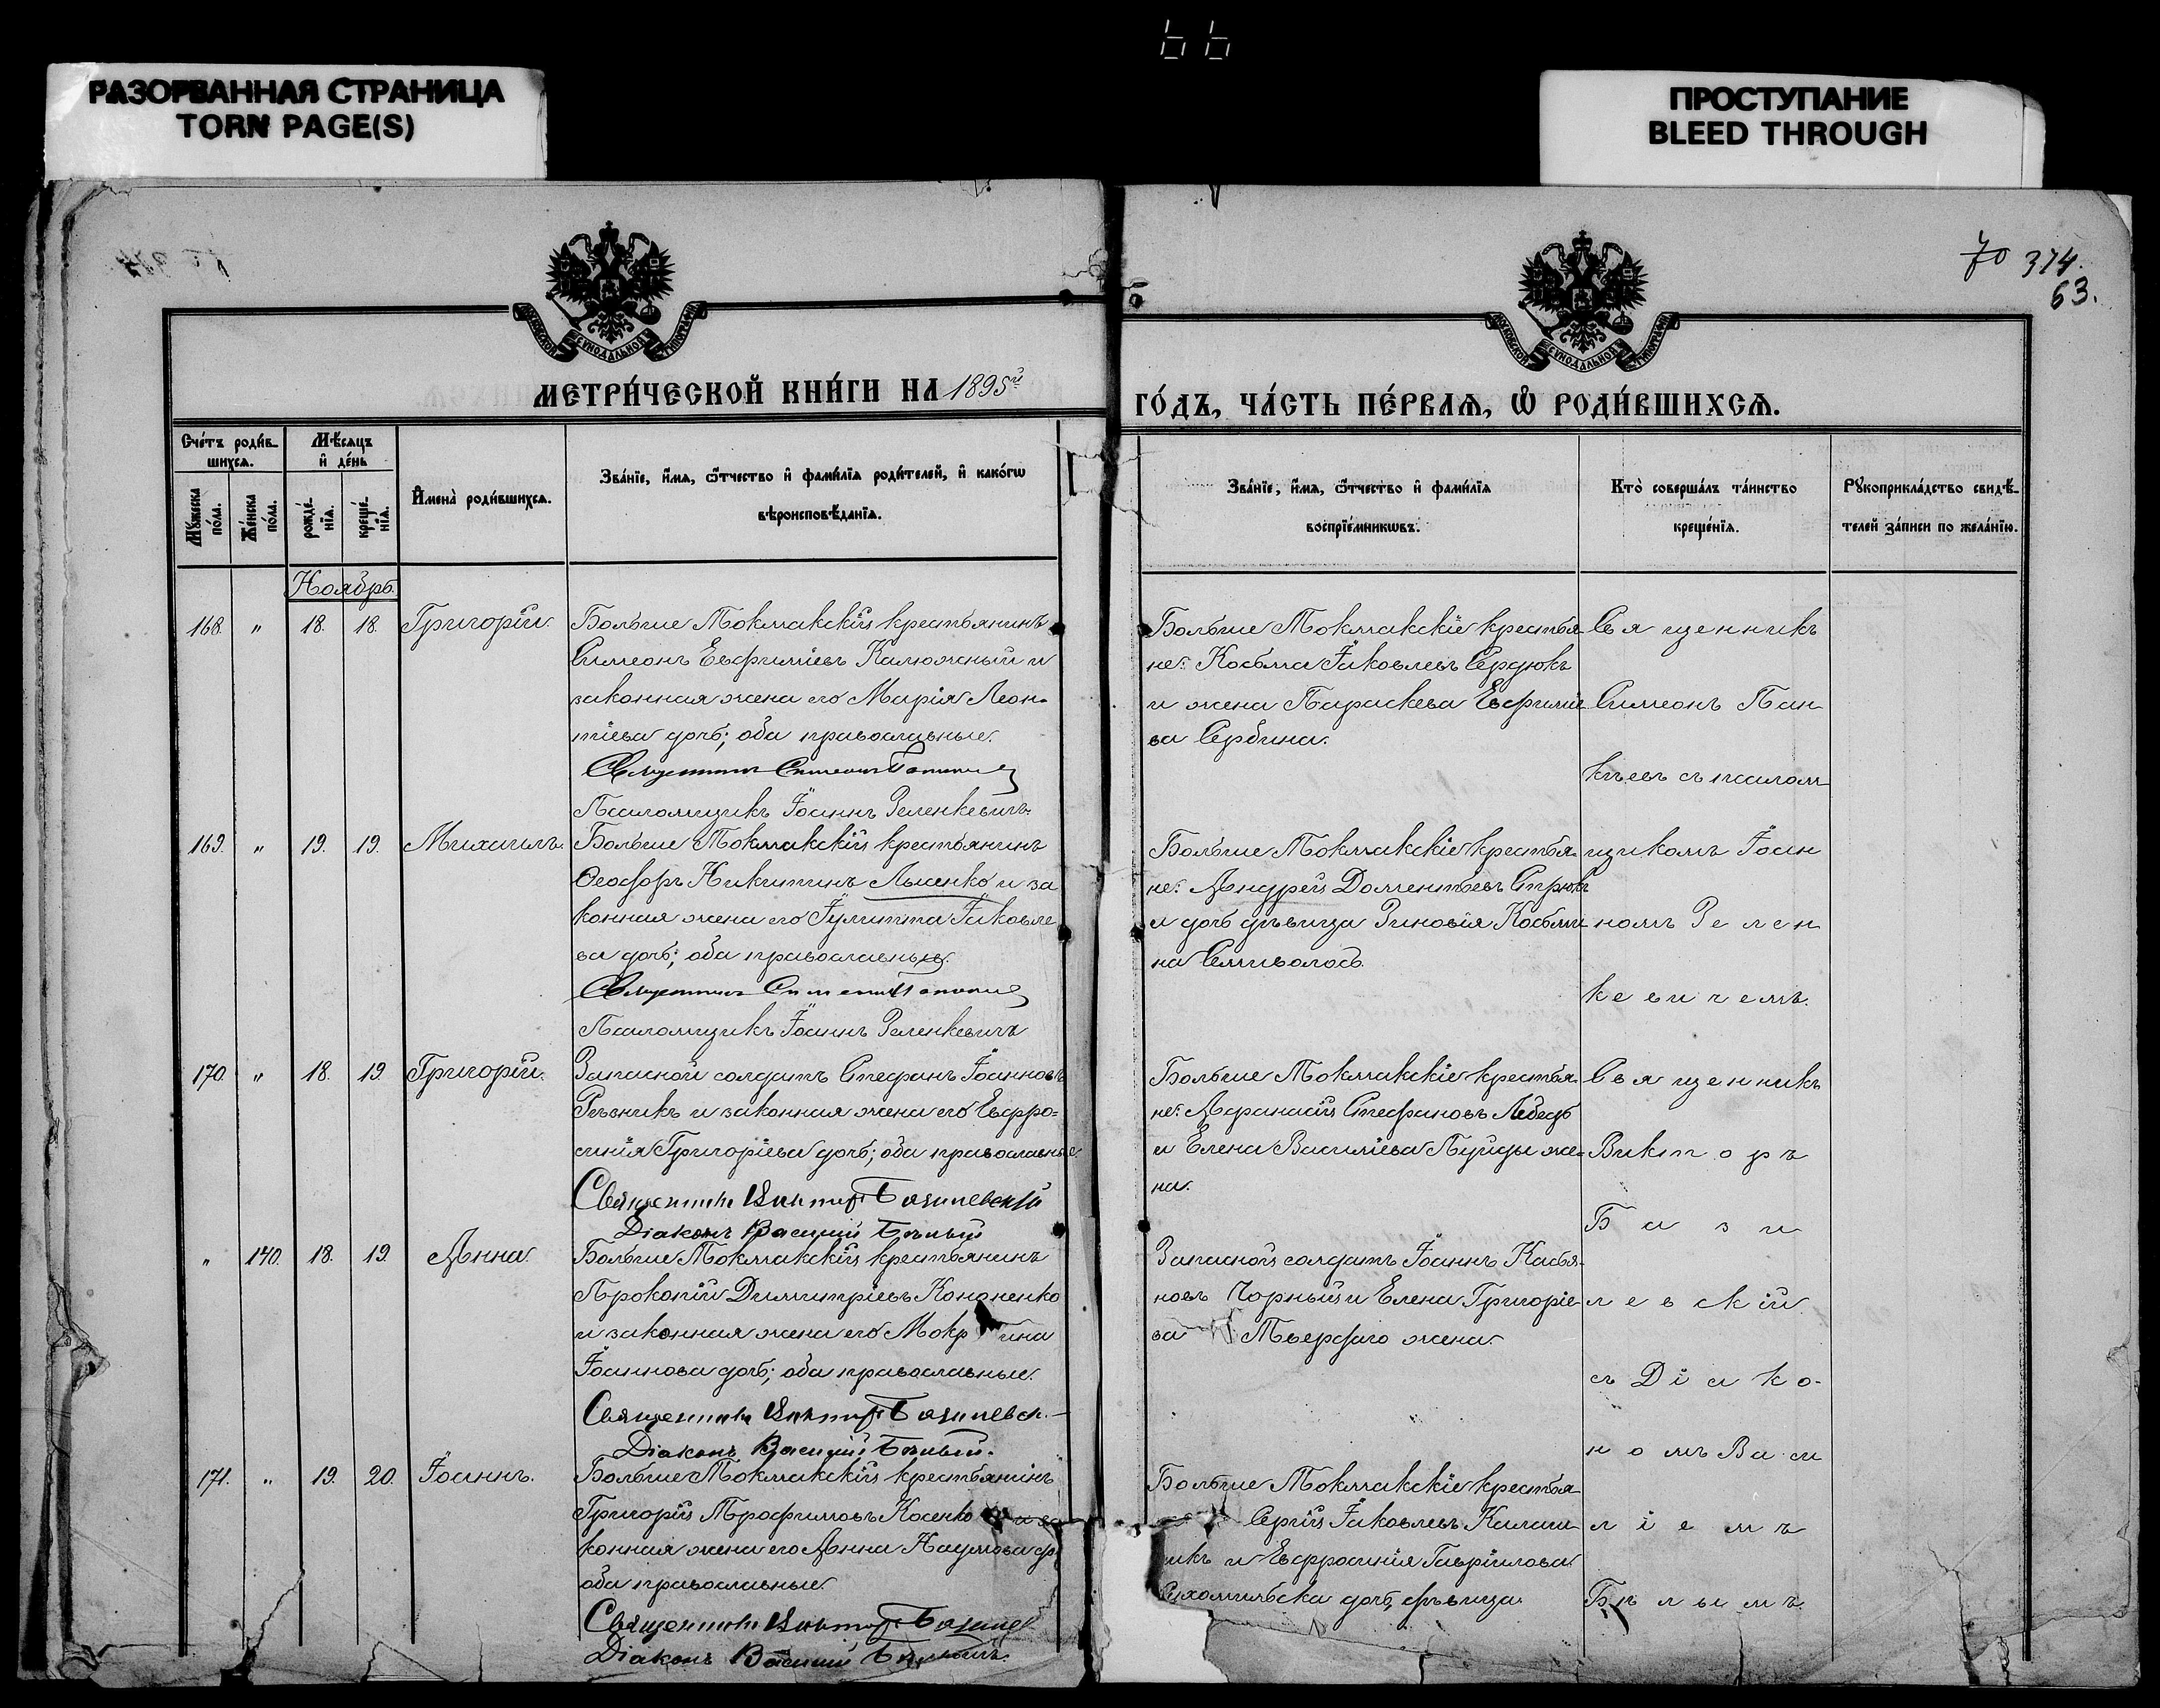 66
РАЗОРВАННАЯ СТРАНИЦА
TORN PAGE(S)
ПРОСТУПАНИЕ
BLEED THROUGH
70 374.
63.
МОСКОВСКОЙ СѴНОДАЛЬНОЙ ТИПОГРАФІИ
МОСКОВСКОЙ СѴНОДАЛЬНОЙ ТИПОГРАФІИ
МЕТРИ́ЧЕСКОЙ КНИ́ГИ НА 1895й
ГО́ДЪ, ЧА́СТЬ ПЕ́РВАѦ, Ѡ҆ РОДИ́ВШИХСѦ.
Сче́тъ роди́в-
шихсѧ.
Мѣ́сѧцъ
и҆ де́нь
Мꙋ́жеска по́ла.
Же́нска по́ла.
рожде́-
нїѧ.
креще́-
нїѧ.
И҆мена̀ роди́вшихсѧ.
Зва́нїе, и҆́мѧ, ѻ҆́тчество и҆ фами́лїѧ роди́телей, и҆ како́гѡ
вѣроисповѣ́данїѧ.
Зва́нїе, и҆́мѧ, ѻ҆́тчество и҆ фами́лїѧ
воспрїе́мникѡвъ.
Кто̀ соверша́лъ та́инство
креще́нїѧ.
Рꙋкоприкла́дство свидѣ́-
телей за́писи по жела́нїю.
Ноябрь.
168. " 18. 18. Григорій.
Больше Токмакскій крестьянинъ
Симеонъ Евфиміевъ Калюжный и
законная жена его Марія Леон-
тіева дочь; оба православные.
Священникъ Симеонъ
Псаломщикъ Іоаннъ Зеленкевичъ.
Больше Токмакскіе крестья-
не: Косьма Іаковлевъ Сердюкъ
и жена Параскева Евфиміе-
ва Сербина.
Священникъ
Симеонъ Пан-
къевъ съ псалом-
169. " 19. 19. Михаилъ.
Больше Токмакскій крестьянинъ
Ѳеодоръ Никитинъ Лысенко и за
конная жена его Іулитта Іаковле
ва дочь; оба православные.
Священникъ Симеонъ
Псаломщикъ Іоаннъ Зеленкевичъ
Больше Токмакскіе крестья-
не: Андрей Доментіевъ Стрюкъ
и дочь дѣвица Зиновія Косьми-
на Семиволосъ.
щикомъ Іоан
номъ Зелен
кевичемъ.
170. " 18. 19. Григорій.
Запасной солдатъ Стефанъ Іоанновъ
Рѣзникъ и законная жена его Евфро-
синія Григоріева дочь; оба православные
Священникъ Викторъ Базилевскій
Діаконъ Василій Бѣлый
Больше Токмакскіе крестья-
не: Афанасій Стефановъ Лебедь
и Елена Василіева жe-
на.
Священникъ
Викторъ
Бази
" 140. 18. 19. Анна.
Больше Токмакскій крестьянинъ
Прокопій Димитріевъ Кононенко
и законная жена его Мокр ина
Іоаннова дочь; оба православные.
Священникъ Викторъ Базилевск.
Діаконъ Василій Бѣлый.
Запасной солдатъ Іоаннъ Касья-
новъ Чорный и Елена Григоріе-
ва Твердаго жена.
левскій
съ Діако-
номъ Васи
171. " 19. 20. Іоаннъ.
Больше Токмакскій крестьянинъ
Григорій Трофимовъ Косенко и за
конная жена его Анна Наумова д
оба православные.
Священникъ Викторъ Базилев
Діаконъ Василій Бѣлый.
Больше Токмакскіе крестья-
Сергій Іаковлевъ Калаш
икъ и Евфросинія Гавріилова
дочь, дѣвица.
ліемъ
Бѣлымъ.